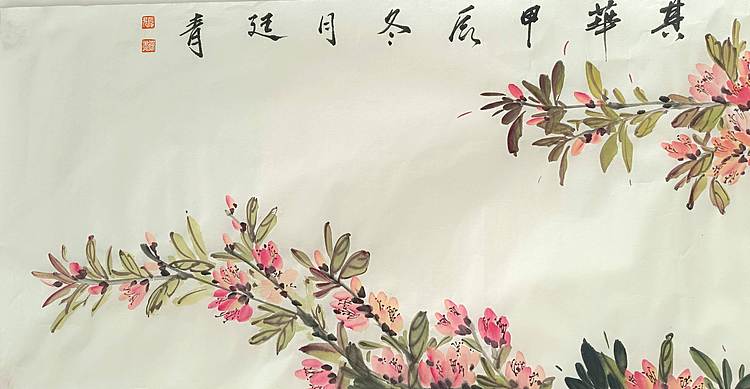 其華甲辰冬月廷青